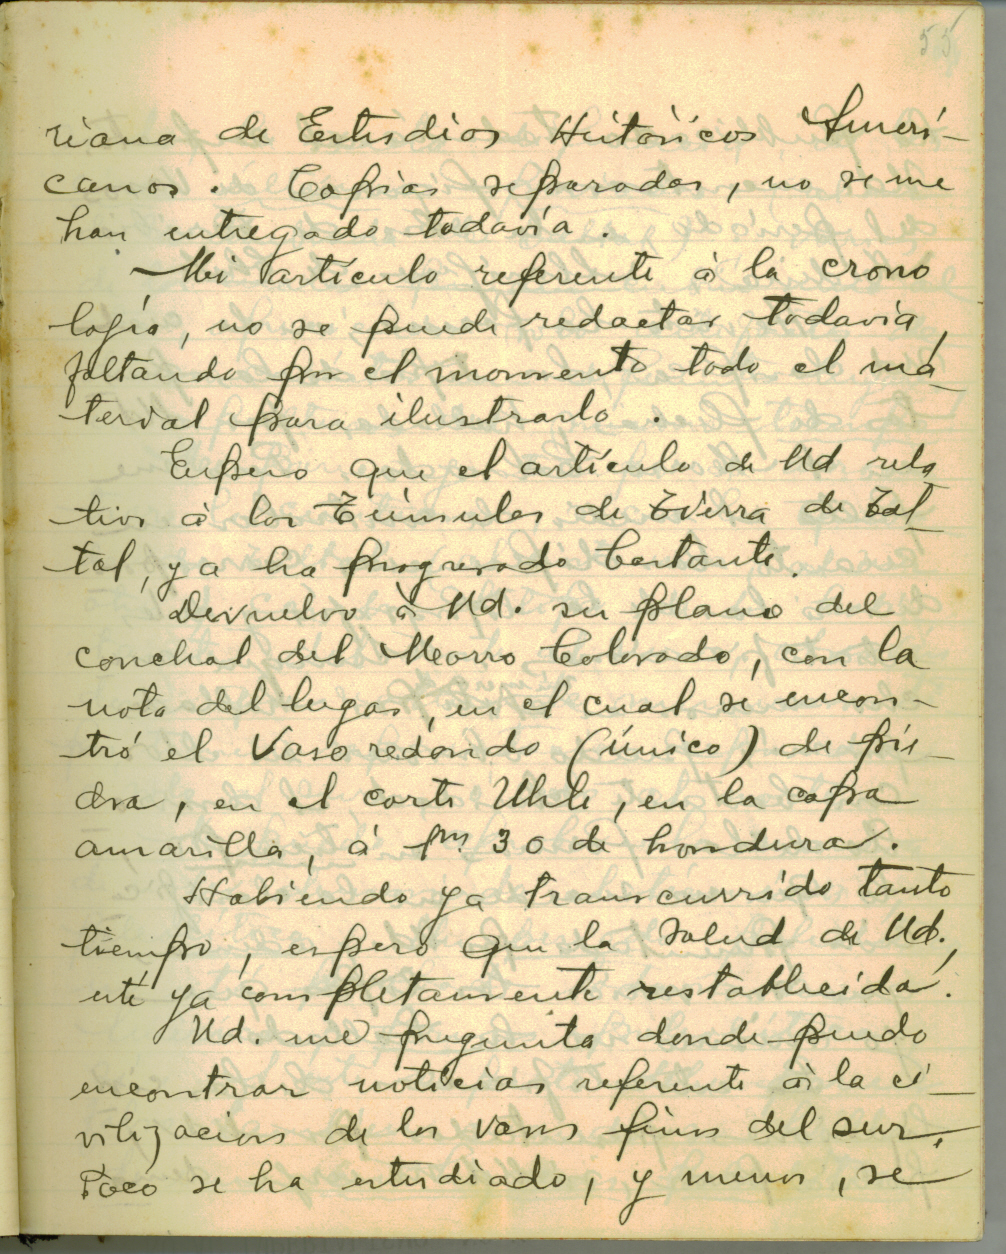 55
riana de Estudios Históricos Ameri-
canos. Copias separadas, no se me
han entregado todavía.
Mi artículo referente à la crono
logía, no se puede redactar todavía,
faltando por el momento todo el ma-
terial para ilustrarlo.
Espero que el artículo de Ud rela
tivo à los Túmulos de Tierra de Tal-
tal, ya ha progresado bastante.
Devuelvo à Ud. su plano del
conchal del Morro Colorado, con la
nota del lugar, en el cual se encon-
tró el vaso redondo (único) de pie-
dra, en el corte Uhle, en la capa
amarilla, á 1m 30 de hondura.
Habiendo ya transcurrido tanto
tiempo, espero que la salud de Ud.,
esté ya completamente restablecida.
Ud. me pregunta donde puedo
encontrar noticias referente à la ci-
vilizacion de los vasos finos del sur.
Poco se ha estudiado, y menos, se